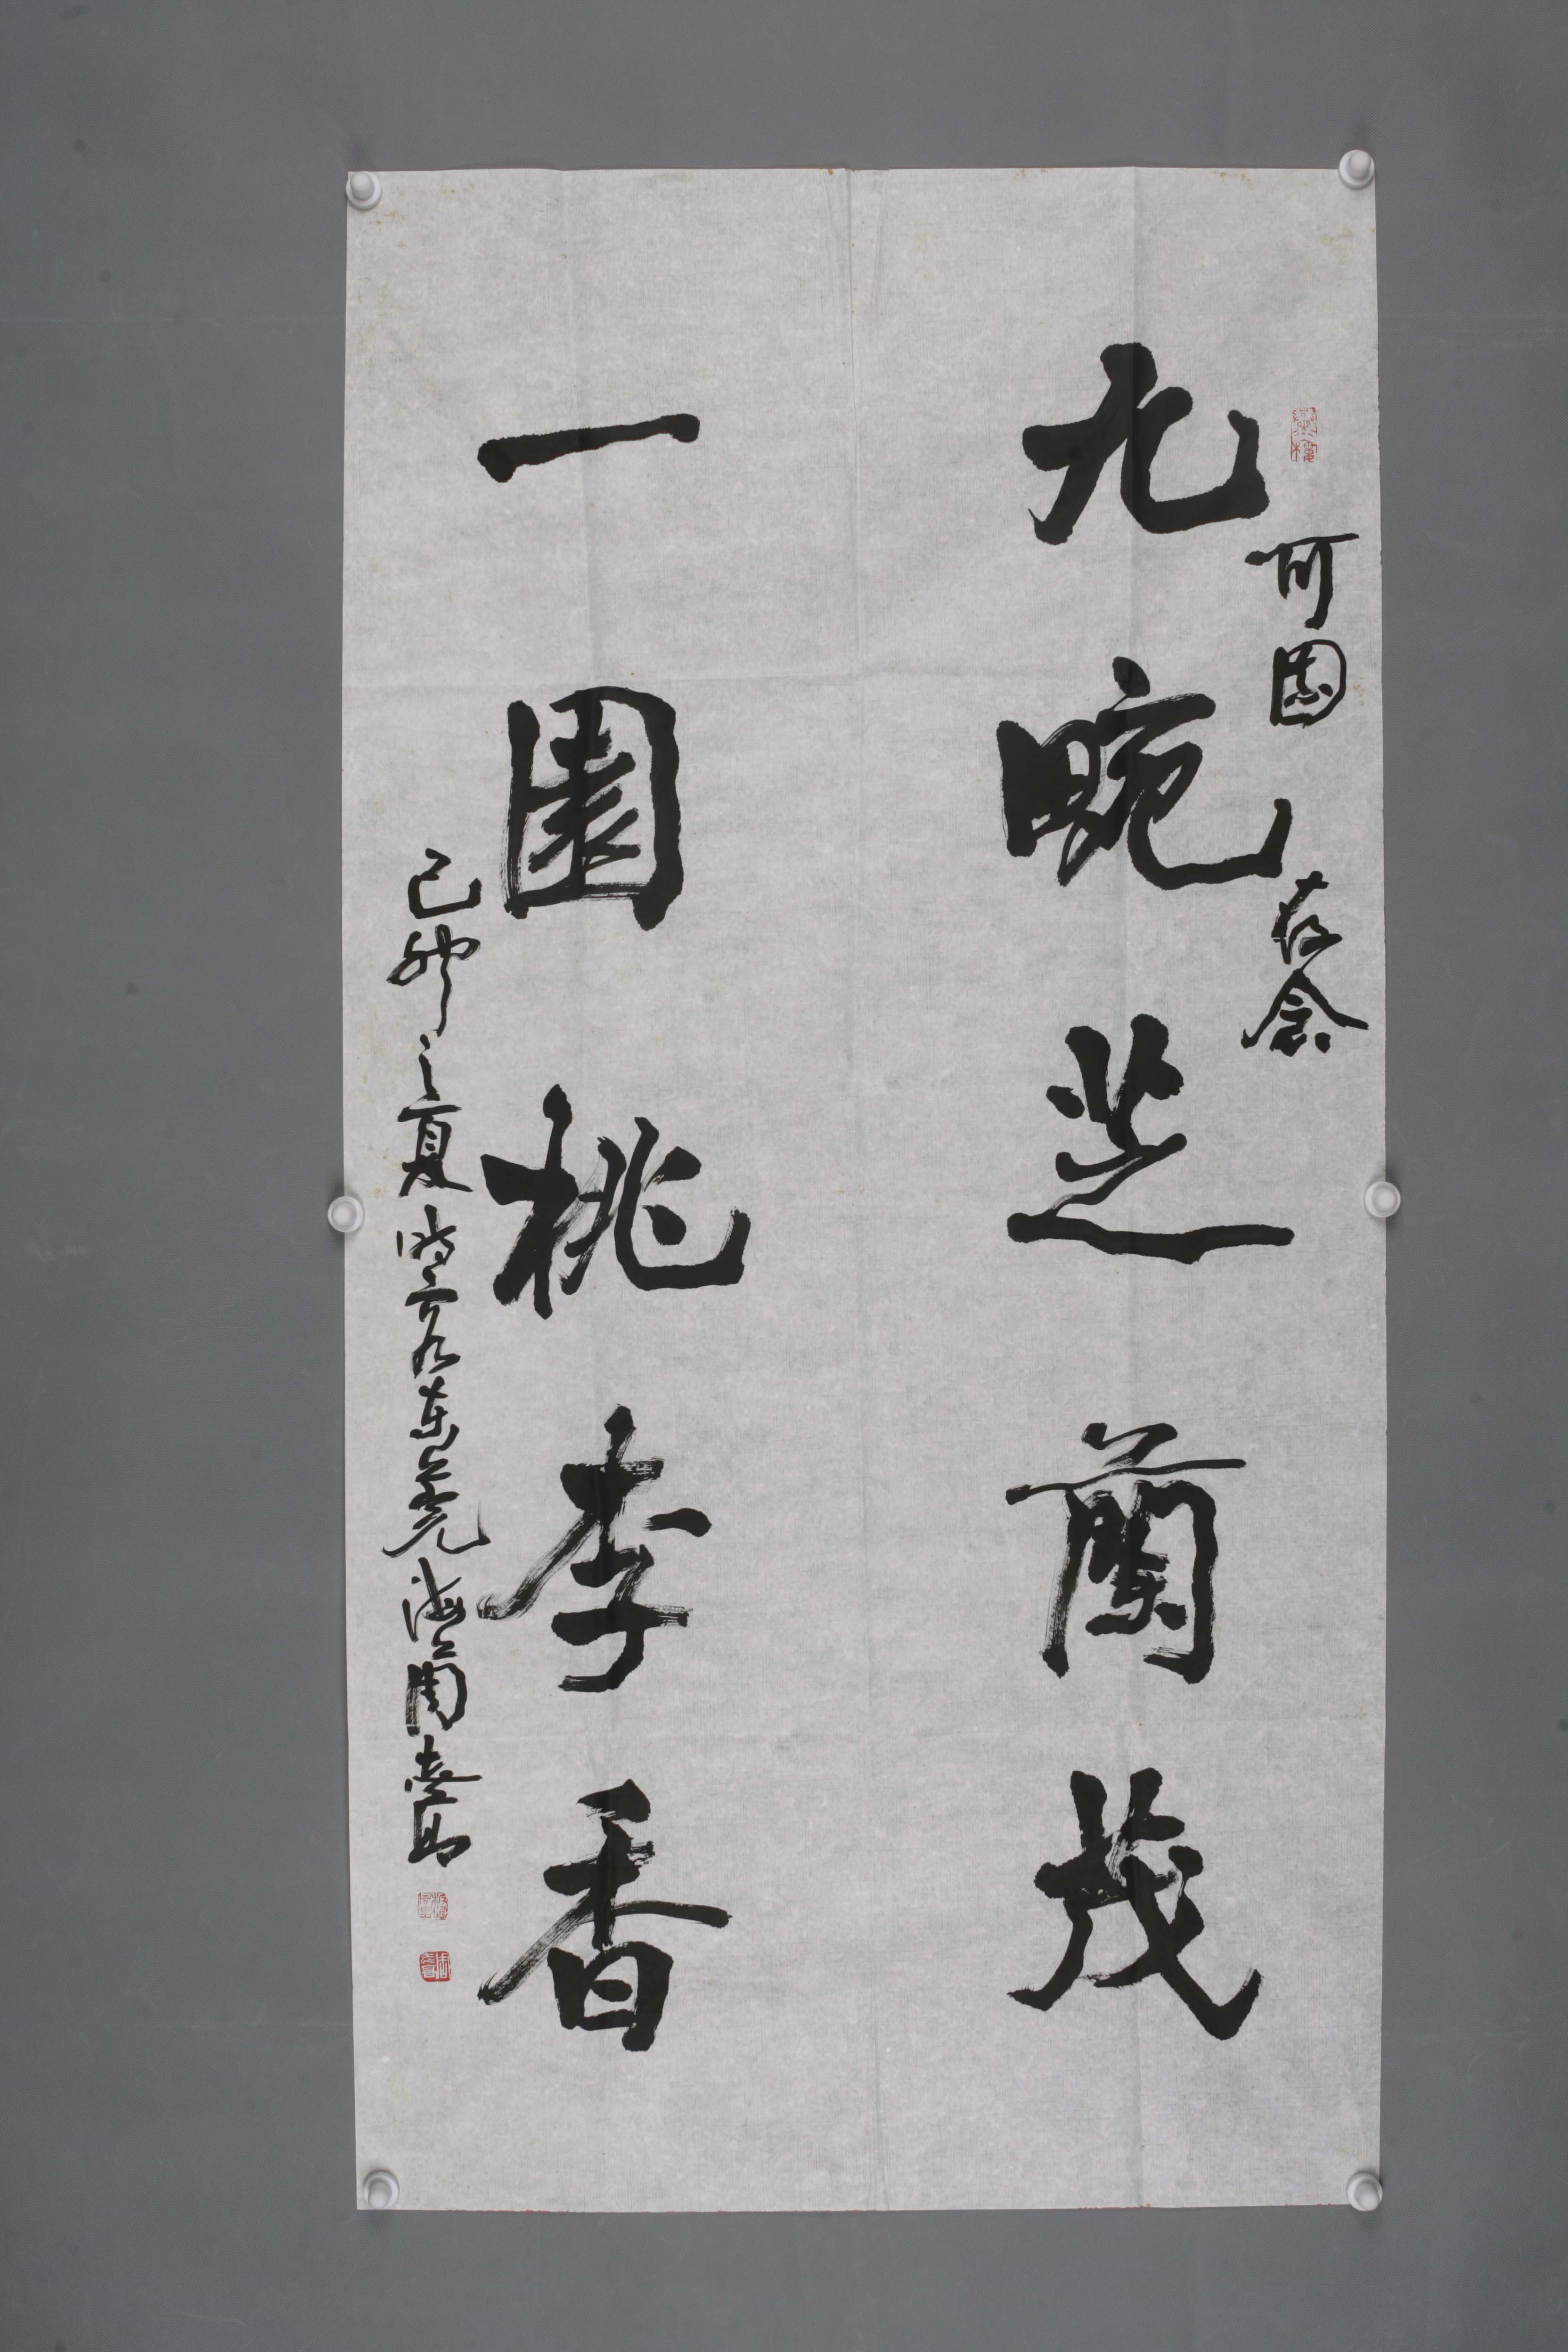 可園 存念
九畹芝蘭茂
一園桃李香
己卯之夏時客東莞海南周